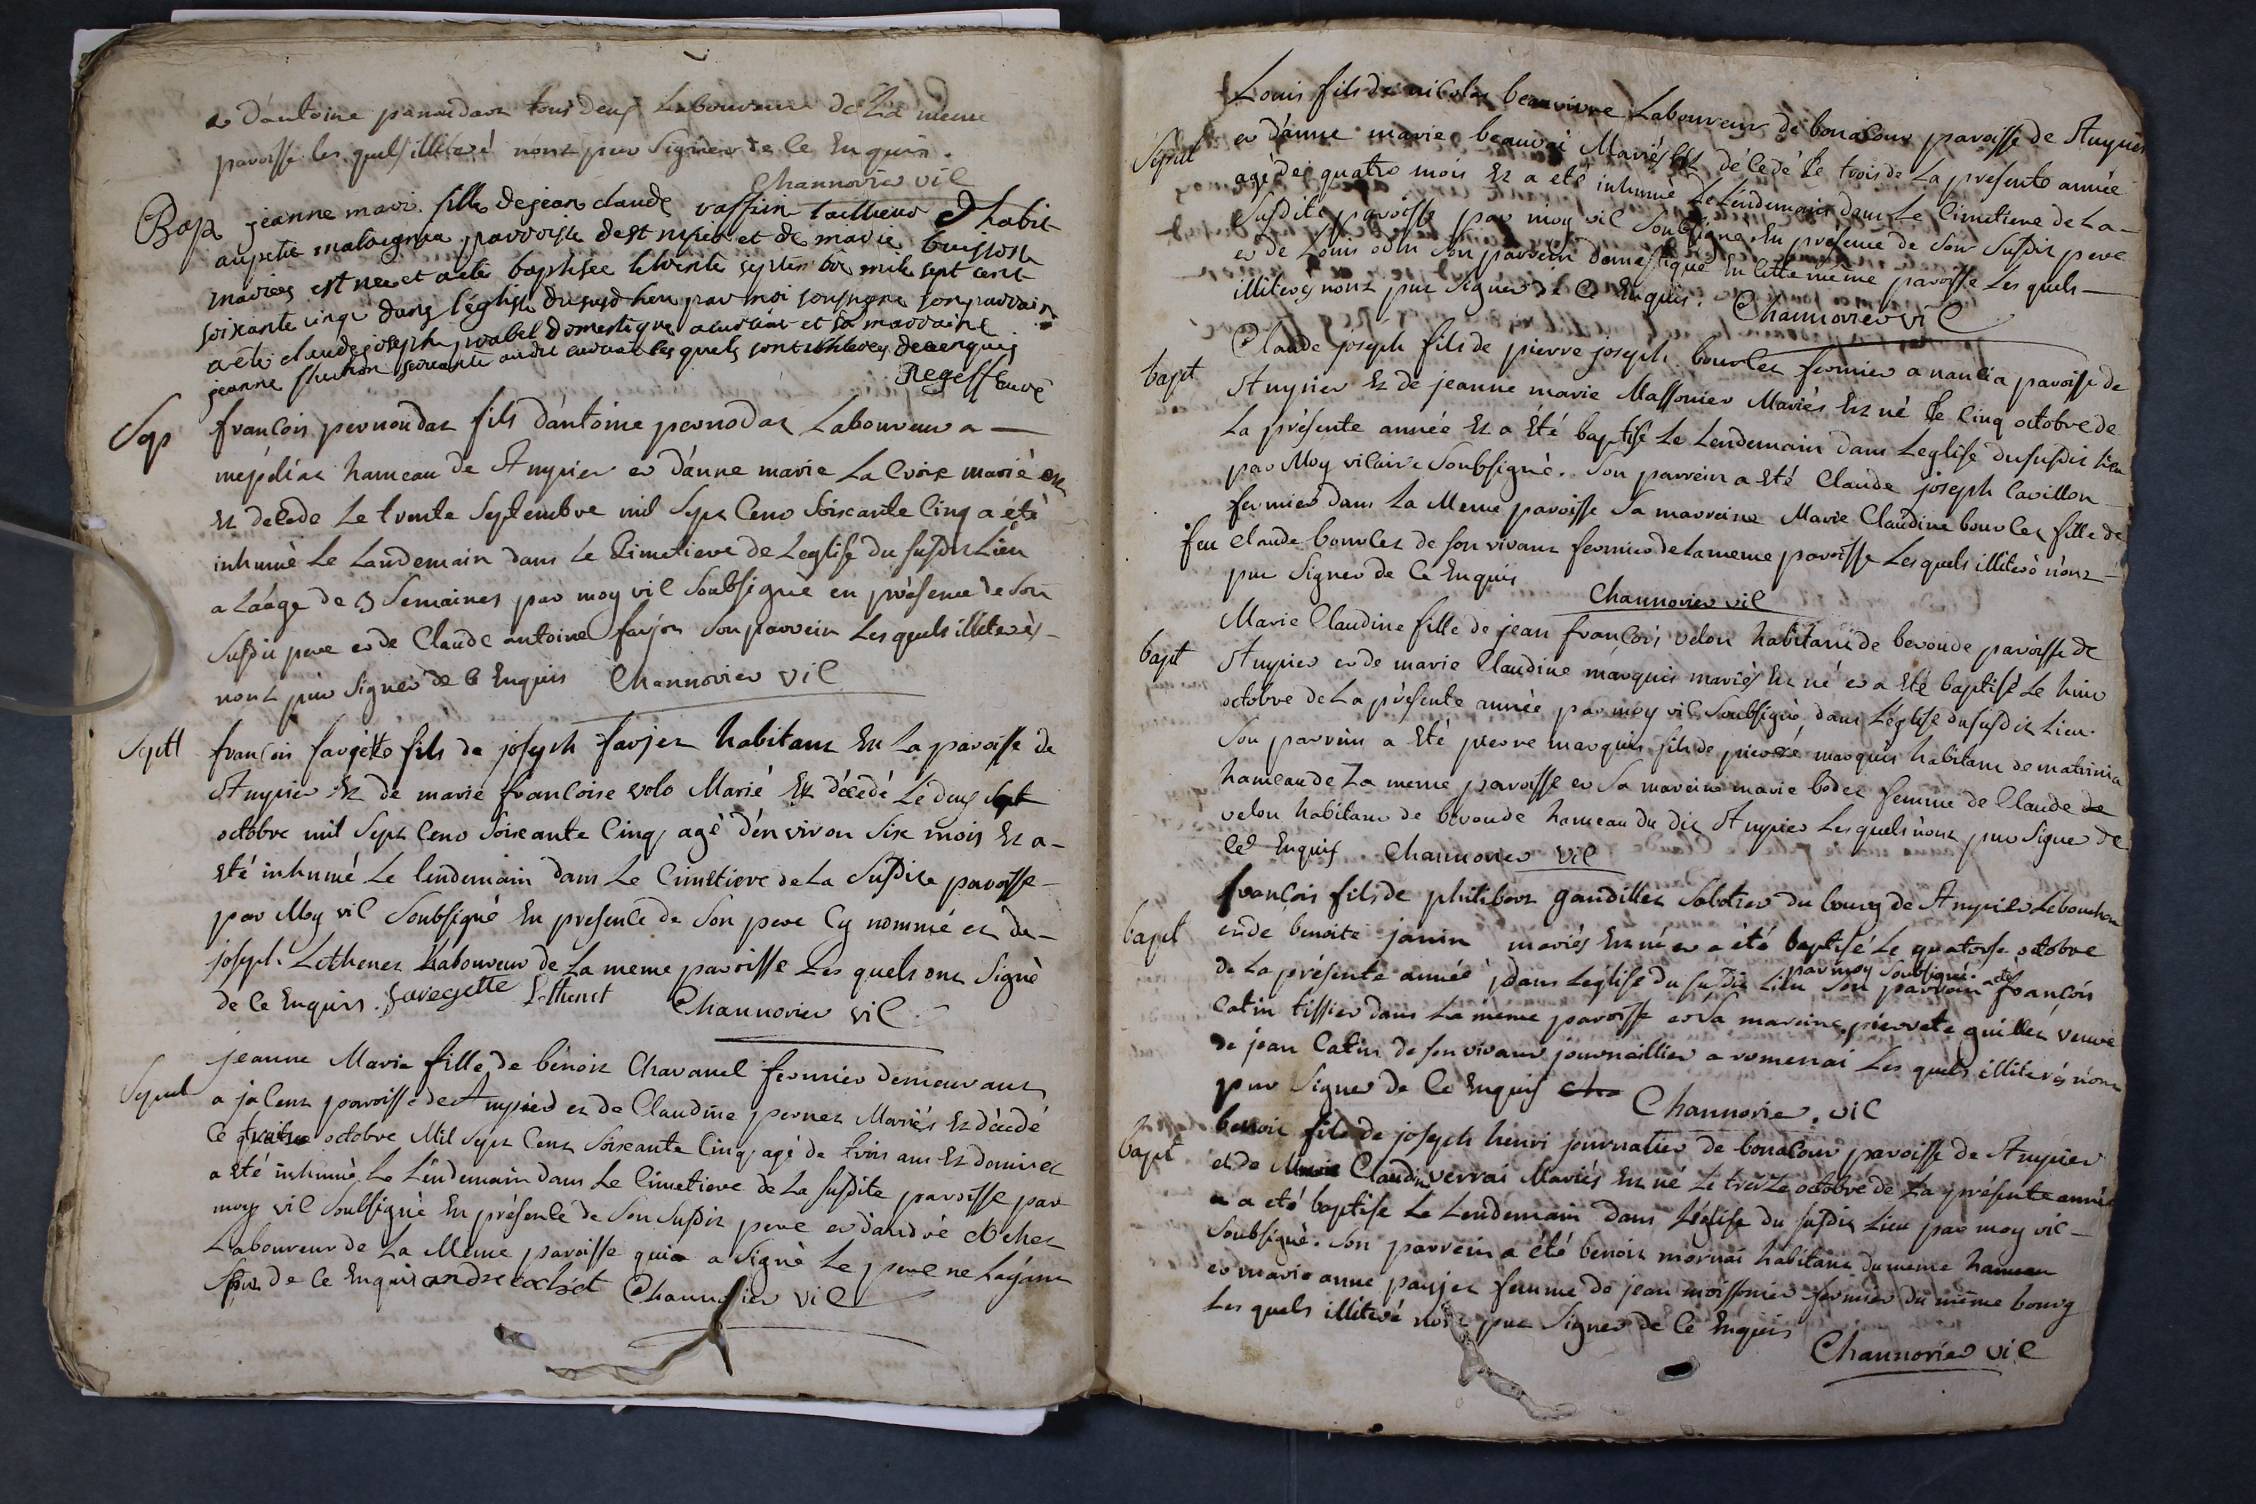 & d'antoine panoudar tous deux Laboureur de La meme
paroisse les quels illiteré nont peu Signer de Ce Enquis.
Channorier vic
Bap jeanne mari fille de jean claude vassier taillieur d'habit
au petit malaigna parroisse de st nisier et de marie buisson
mariés est née et a eté baptisee le trente septenbre mile sept cent
soixante cinq dans l'église du susd lieu par moi sousigné son parrain
a eté claude joseph domestique a et sa marraine
jeanne servante audit les quels sont illiterés de ce enquis
Regeff curé
Sep françois pernoudat fils d'antoine pernodat Laboureur a
mépiliat hameau de St nizier et d'anne marie La Croix marié
Est decede Le trente Septembre mil Sept Cent Soixante Cinq a été
inhumé Le Landemain dans Le Cimetiere de Leglise du susdit Lieu
a Laage de 3 Semaines par moy vic Soubsigné en présence de Son
Susdit pere et de Claude antoine farjon Son parrein Les quels illiterés
nont peu Signer de Ce Enquis Channorier vic
Septl françois fargette fils de joseph farjet habitant En La paroisse de
St nizier Et de marie françoise volo Marié Est décedé Le deux
octobre mil Sept Cent Soixante Cinq, agé d'environ Six mois Et a
Eté inhumé Le lendemain dans Le Cimetiere de La Susdite paroisse
par Moy vic Soubsigné En presence de Son pere Cy nommé et de
joseph Lethenet Laboureur de La meme paroisse Les quels ont Signé
de Ce Enquis. favegette Lethenet Channorier vic
Sepul jeanne Marie fille de benoit Chavanel fermier demeurant
a jalent paroisse de St nizier et de Claudine pernet Mariés Est décedé
Ce quatre octobre Mil Sept Cent Soixante Cinq, agé de trois ans Et demi et
a Eté inhumé Le Lendemain dans Le Cimetiere de La Susdite paroisse par
moy vic Soubsigné En présence de Son Susdit pere et d'andré Cochet
Laboureur de La Meme paroisse qui a Signé Le pere ne Layant
Sçu de Ce Enquis andre cochet Channorier vic
Sepul Louis fils de nicolas beauvivre Laboureur de bonacour paroisse de St nizier
et d'anne marie beauvai Mariés Est décedé Le trois de La presente année
agé de quatre mois Et a eté inhumé Le Lendemain dans Le Cimetiere de La
Susdite paroisse par moy vic Soubsigné En presence de Son Susdit pere
et de Louis odin Son parrein domestique En cette même paroisse Les quels
illiterés nont peu Signer de Ce Enquis. Channorier vic
bapt Claude joseph fils de pierre joseph bourlet fermier a nantia paroisse de
St nizier Et de jeanne marie Massonier Mariés Est né Le Cinq octobre de
La présente année Et a Eté baptisé Le Lendemain dans Leglise du susdit lieu
par Moy vicaire Soubsigné. Son parrein a Eté Claude joseph Cavillon
fermier dans La Meme paroisse Sa marreine Marie Claudine bourlet fille de
feu Claude bourlet de son vivant fermier de la meme paroisse Les quels illiteré n'ont
peu Signer de Ce Enquis Channorier vic
bapt Marie Claudine fille de jean françois velon habitant de beroude paroisse de
St nizier et de marie Claudine marquis mariés Est né et a Eté baptisé Le huit
octobre de La présente année par moy vic Soubsigné dans L'église du susdit Lieu.
Son parrein a Eté pierre marquis fils de pierre marquis habitant de matrinia
hameau de La meme paroisse et Sa mareine marie bodet femme de Claude de
velon habitant de beroude hameau du dit St nizier Les quels n'ont peu Signer de
Ce Enquis Channorier vic
bapt françois fils de philibert gaudillet Sabotier du bourg de St nizier Lebouchou
et de benoite janin mariés Est né et a été baptisé Le quatorse octobre
de La présente année dans Leglise du susdit Lieu par moy Soubsigné. Son parrein a eté françois
Catin tissier dans La même paroisse et Sa mareine pierrete guillet veuve
de jean Catin de son vivant journaillier a romenai Les quels illiterés n'ont
peu Signer de Ce Enquis Channorier. vic
bapt benoit fils de joseph henri journalier de bonacour paroisse de St nizier
et de Claudine verrai Mariés Est né Le treize octobre de La présente année
et a eté baptisé Le Lendemain dans L'église du susdit Lieu par moy vic
Soubsigné. Son parrein a été benoit mornai habitant du meme hameau
et marie anne panjet femme de jean moissonier fermier du même bourg
Les quels illiteré nont peu Signer de Ce Enquis
Channorier vic